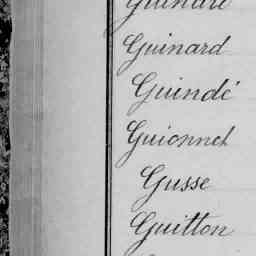 Guinard
Guindé
Guionnet
Gusse
Guitton